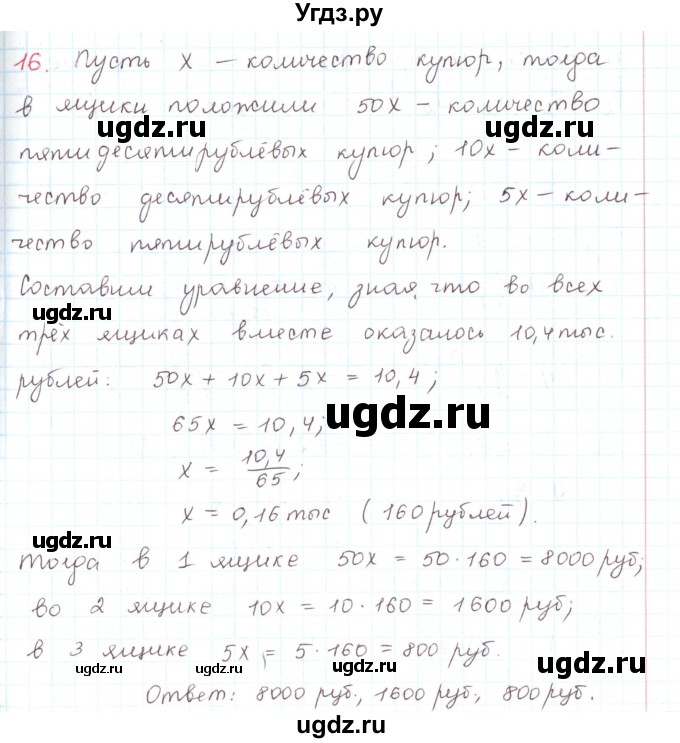 Угдз.ру
16. Пусть x – количество купюр, тогда
в ящики положили 50x – количество
ugdz.ru ugdz.ru
пятидесятирублёвых купюр; 10x – коли-
чество десятирублёвых купюр; 5x – коли-
чество пятирублёвых купюр.
Составим уравнение, зная, что во всех
ugdz.ru ugdz.ru
трёх ящиках вместе оказалось 10,4 тыс.
рублей: 50x + 10x + 5x = 10,4;
ugdz.ru
65x = 10,4;
x = 10,4/65;
x = 0,16 тыс (160 рублей).
ugdz.ru
Тогда в 1 ящике 50x = 50·160 = 8000 руб;
во 2 ящике 10x = 10·160 = 1600 руб;
в 3 ящике 5x = 5·160 = 800 руб.
ugdz.ru ugdz.ru ugdz.ru ugdz.ru
Ответ: 8000 руб., 1600 руб., 800 руб.
ugdz.ru